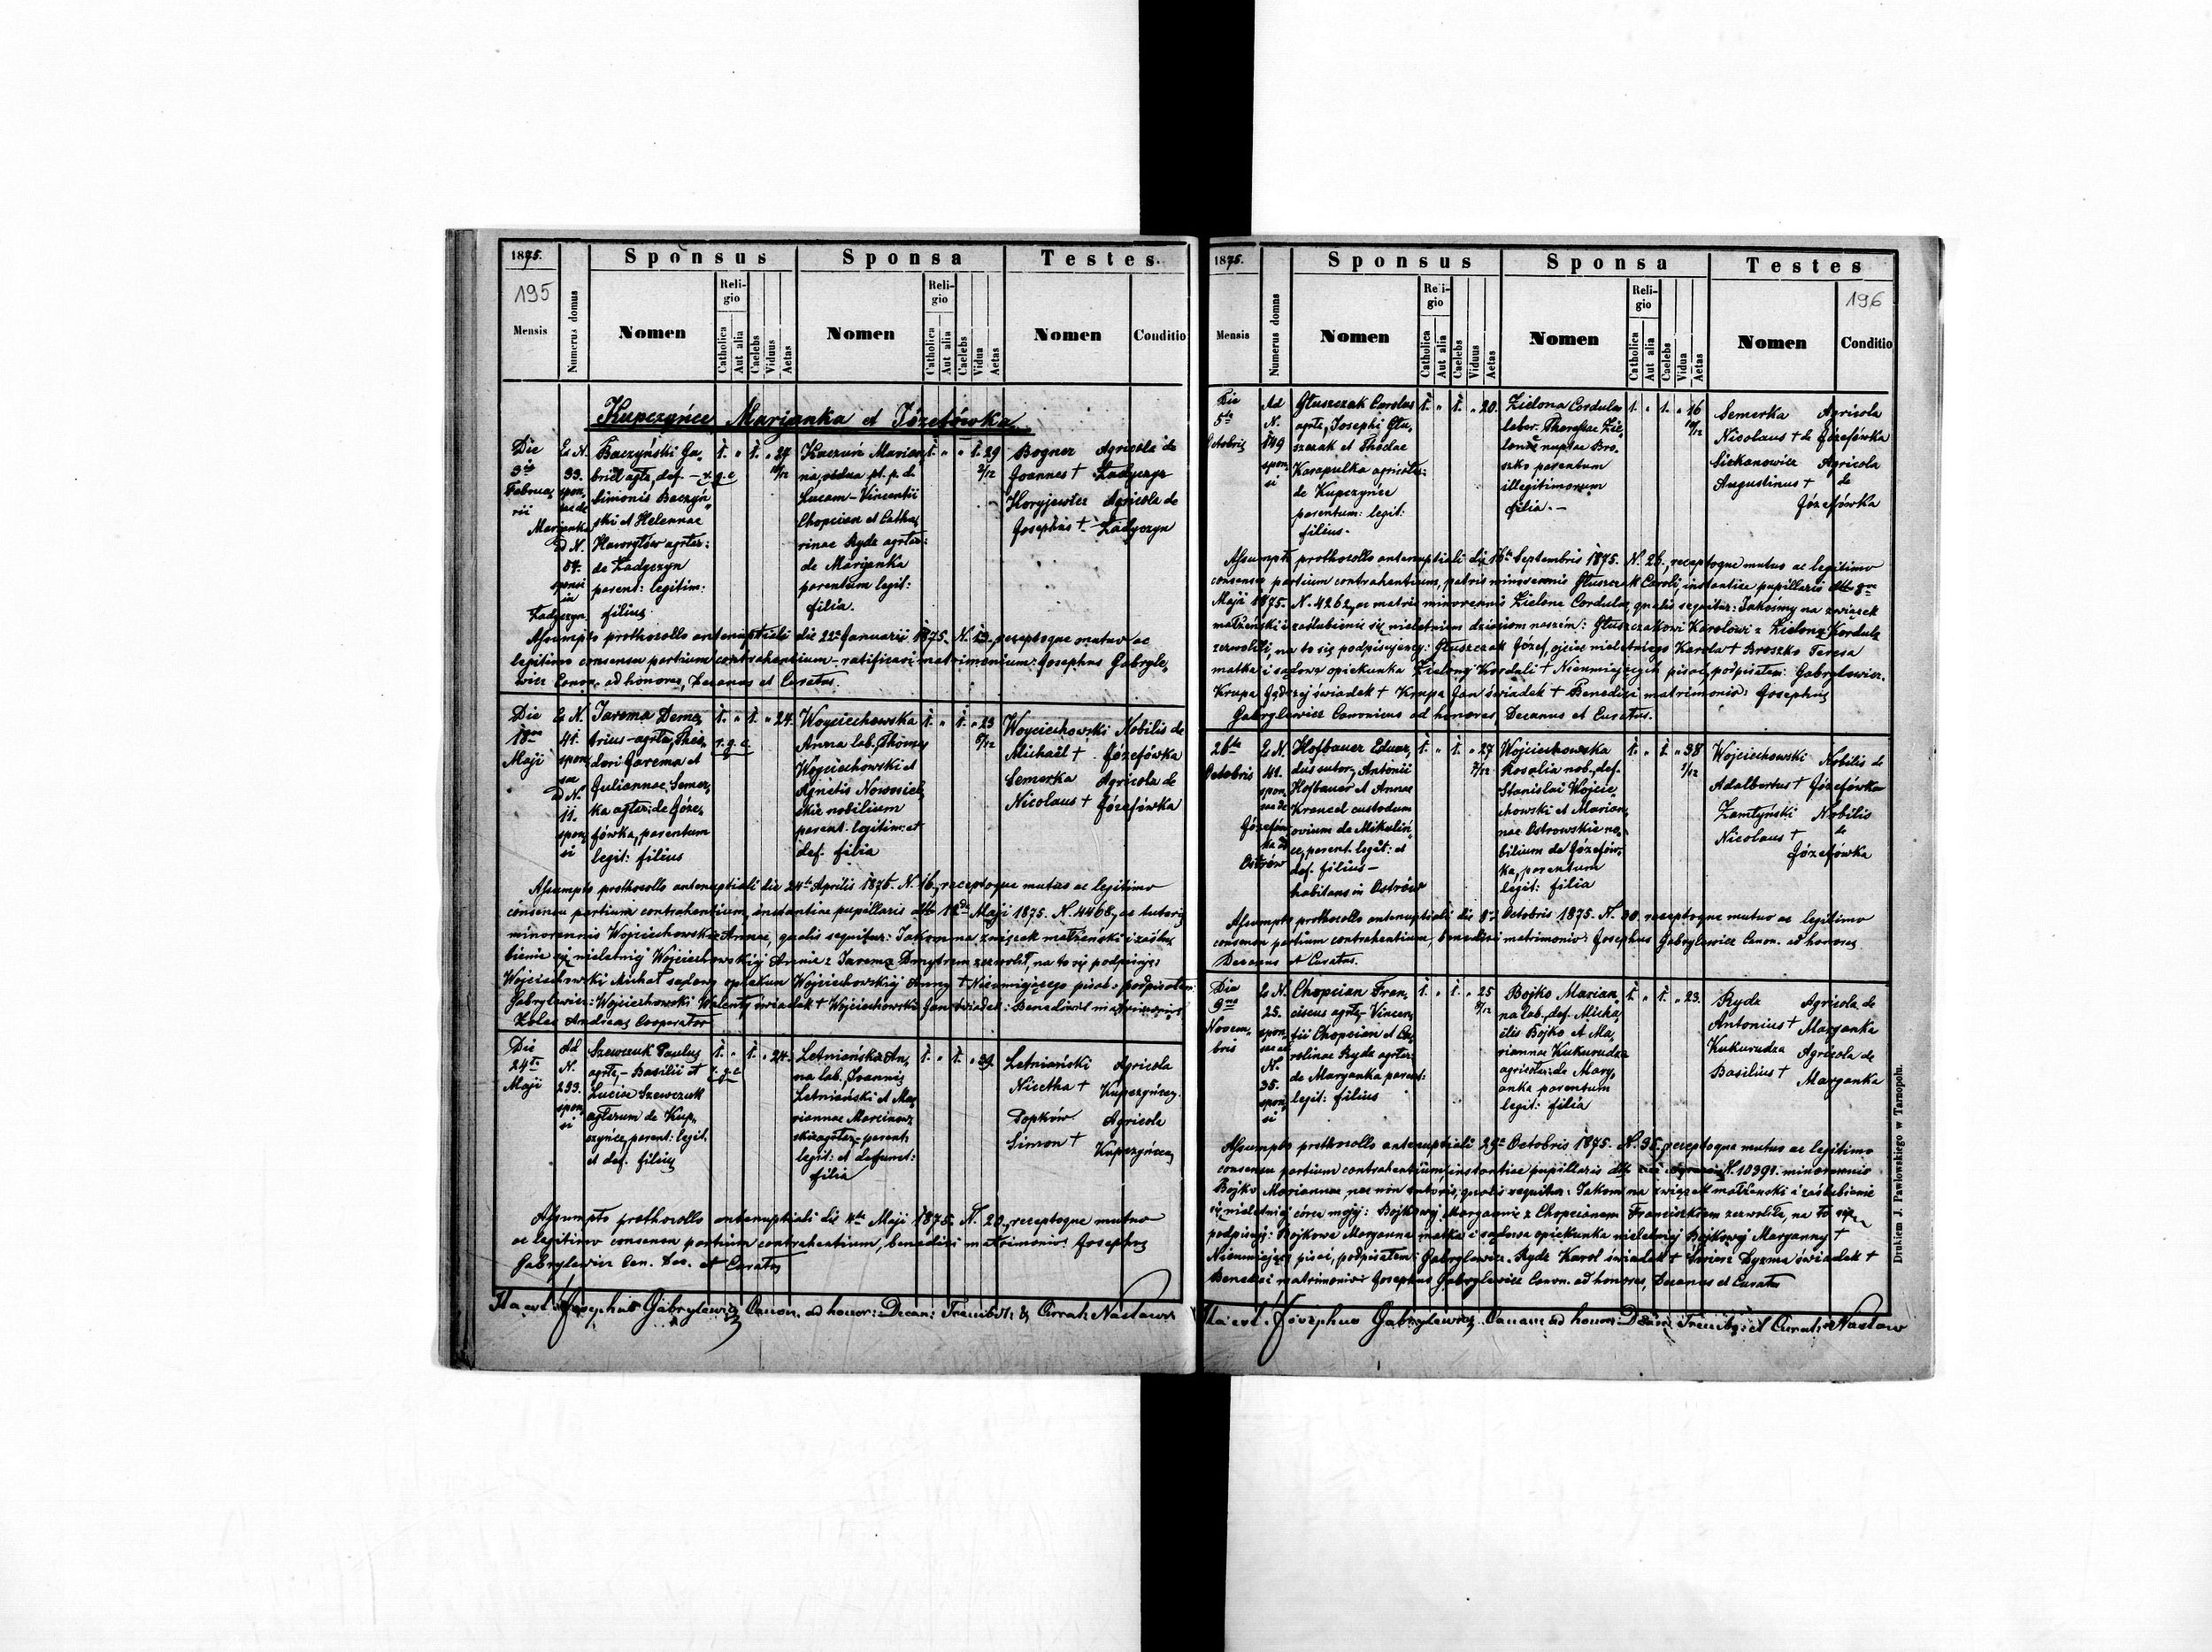 1875.
195
Mensis
Numerus domus
Sponsus
Nomen
Religio
Catholica
Aut alia
Caelebs
Viduus
Aetas
Sponsa
Nomen
Religio
Catholica
Aut alia
Caelebs
Vidua
Aetas
Testes
Nomen
Conditio
Kupczyńce, Marjanka et Józefówka
Die
3tia
Februa
rii
Ex N.
33.
spon
sae de
Marjanka
ad N.
54.
sponsi
in
Ladyczyn
Baczyński Ga,
briel agta, def. –
Simonis Baczyń
ski et Helennae
Hawryłów agrlar:
de Ladyczyn
parent: legitim:
filius.
1. " 1. " 27
10/12
r. g. c
Kaczuń Marian
na, vidua pt. p. d.
Lucam – Vincentii
Chopcian et Catha
rinae Ryda agrlar:
de Marjanka
parentum legit:
filia.
1. " " 1. 29
2/12
Bogner
Joannes +
Horyjewicz
Josephus +
Agricola de
Ladyczyn
Agricola de
Ladyczyn
Assumpto prothocollo antenuptiali die 22a Januarii 1875. N. 13, receptoque mutuo ac
legitimo consensu partium contrahentium – ratificavi matrimonium: Josephus Gabryle,
wicz Canon. ad honores, Decanus et Curatus.
Die
18va
Maji
Ex N.
41.
spon
sae
ad N.
11.
spon
si
Jarema Deme,
trius – agrla, Theo,
dori Jarema et
Juliannae Semer,
ka agrlar: de Józe,
fówka, parentum
legit: filius
1. " 1. " 24.
r. g. c.
Woyciechowska
Anna lab, Thomae
Woyciechowski et
Agnetis Nowosiel
skie nobilium
parent. legitim: et
def. filia
1. " 1. " 23
8/12
Woyciechowski
Michaël +
Semerka
Nicolaus +
Nobilis de
Józefówka
Agricola de
Józefówka
Assumpto prothocollo antenuptiali die 24ta Aprilis 1875. N. 16, receptoque mutuo ac legitimo
consensu partium contrahentium, instantiae pupillaris dtto 12da Maji 1875. N. 4468, ac tutoris
minorennis Wojciechowskie Annae, qualis sequitur: Jakom na związek małżeński i zaślu,
bienie się nieletniej Wojciechowskiej Annie z Jarema Dmytrem zezwolił, na to się podpisuję:
Wojciechowski Michał sądowy opiekun Wojciechowskiej Anny + Nieumiejącego pisać podpisałem
Gabrylewicz: Wojciechowski Walenty świadek + Wojciechowski Jan świadek: Benedixit matrimonio,
Andreas Cooperator
Die
24ta
Maji
Ad
N.
293.
spon
si
Szewczuk Paulus
agrla, – Basilii et
Luciae Szewczuk
agrlarum de Kup,
czyńce, parent: legit.
et def. filius
1. " 1. " 24.
r. g. c
Letniańska An,
na lab, Joannis
Letniański et Ma,
riannae Marcinow
skie agrlar – parent.
legit: et defunct:
filia
1. " 1. " 39.
Letniański
Nicetha +
Popków
Simon +
Agricola
Kupczyńcen.
Agricola
Kupczyńcen
Assumpto prothocollo antenuptiali die 4ta Maji 1875. N. 20, receptoque mutuo
ac legitimo consensu partium contrahentium, benedixi matrimonio: Josephus
Gabrylewicz Can. Dec. et Curatus
Ita est Josephus Gabrylewicz Canon. ad honor: Decan: Trembl: & Curat: Nastaw:
1875.
196
Mensis
Numerus domus
Sponsus
Nomen
Religio
Catholica
Aut alia
Caelebs
Viduus
Aetas
Sponsa
Nomen
Religio
Catholica
Aut alia
Caelebs
Vidua
Aetas
Testes
Nomen
Conditio
Die
5ta
Octobris
Ad
N.
149
spon
si
Głuszczak Carolus
agrla, Josephi Głu,
szczak et Theclae
Karapulka agricolar:
de Kupczyńce
parentum: legit:
filius.
1. " 1. " 20.
Zielona Cordula
labor. Theresiae Zie,
lonae nuptae Bro,
szko parentum
illegitimorum
filia. –
1. " 1. " 16
10/12
Semerka
Nicolaus + de
Siekanowicz
Augustinus +
Agricola
Józefówka
Agricola
de
Józefówka
Assumpto prothocollo antenuptiali die 16ta Septembris 1875. N. 26, receptoque mutuo ac legitimo
consensu partium contrahentium, patris minorennis Głuszczak Caroli, instantiae pupillaris dtto 8va
Maji 1875. N. 4262, ac matris minorennis Zielona Cordulae, qualis sequitur: Jakośmy na związek
małżeński i zaślubienie się nieletnim dzieciom naszym: Głuszczakowi Karolowi z Zieloną Kordulą
zezwolili, na to się podpisujemy: Głuszczak Józef, ojciec nieletniego Karola + Broszko Teresa
matka i sądowa opiekunka Zielonej Korduli + Nieumiejących pisać, podpisałem: Gabrylewicz.
Krupa Jędrzej świadek + Krupa Jan świadek + Benedixi matrimonio: Josephus
Gabrylewicz Canonicus ad honores, Decanus et Curatus.
26ta
Octobris
Ex N.
41.
spon
sae de
Józefów
ka ad
Ostrów
Hofbauer Eduar,
dus sutor, Antonii
Hofbauer et Annae
Krancel custodum
ovium de Mikuliń
ce, parent. legit: et
def. filius –
habitans in Ostrów
1. " 1. " 27
7/12
Wojciechowska
Rosalia nob, def.
Stanislai Wojcie,
chowski et Marian,
nae Ostrowskie no,
bilium de Józefów,
ka, parentum
legit: filia
1. " 1. " 38
1/12
Wojciechowski
Adalbertus +
Zamłyński
Nicolaus +
Nobilis de
Józefówka
Nobilis
de
Józefówka
Assumpto prothocollo antenuptiali die 8va Octobris 1875. N. 30. receptoque mutuo ac legitimo
consensu partium contrahentium, benedixi matrimonio: Josephus Gabrylewicz Canon. ad honores
Decanus et Curatus.
Die
9na
Novem,
bris
Ex N.
25.
spon
sae ad
N.
35.
spon
si
Chopcian Fran,
ciscus agrla, – Vincen,
tii Chopcian et Ca,
rolinae Ryda agrlar:
de Maryanka parent:
legit: filius
1. " 1. " 25
8/12
Bojko Marian
na lab, def. Micha
ëlis Bojko et Ma,
rianna Kukurudza
agricolar: de Mary,
anka parentum
legit: filia
1. " 1. " 23.
Ryda
Antonius +
Kukurudza
Basilius +
Agricola de
Maryanka
Agricola de
Maryanka
Assumpto prothocollo antenuptiali 29a Octobris 1875. N. 35, receptoque mutuo ac legitimo
consensu partium contrahentium, instantiae pupillaris dtto N. 10391. minorennis
Bojko Mariannae, nec non tutoris, qualis sequitur: Jakom na związek małżeński i zaślubienie
się nieletniej córce mojej: Bojkowej Maryannie z Chopcianem Franciszkiem zezwoliła, na to się
podpisuję: Bojkowa Maryanna matka i sądowa opiekunka nieletniej Bojkowej Maryanny +
Nieumiejącej pisać, podpisałem: Gabrylewicz. Ryda Karol świadek + Dyzma świadek +
Benedixi matrimonio: Josephus Gabrylewicz Canon. ad honores, Decanus et Curatus
Ita est. Josephus Gabrylewicz Canon. ad honor: Decan: Trembl: et Curat: Nastaw
Drukiem J. Pawłowskiego w Tarnopolu.